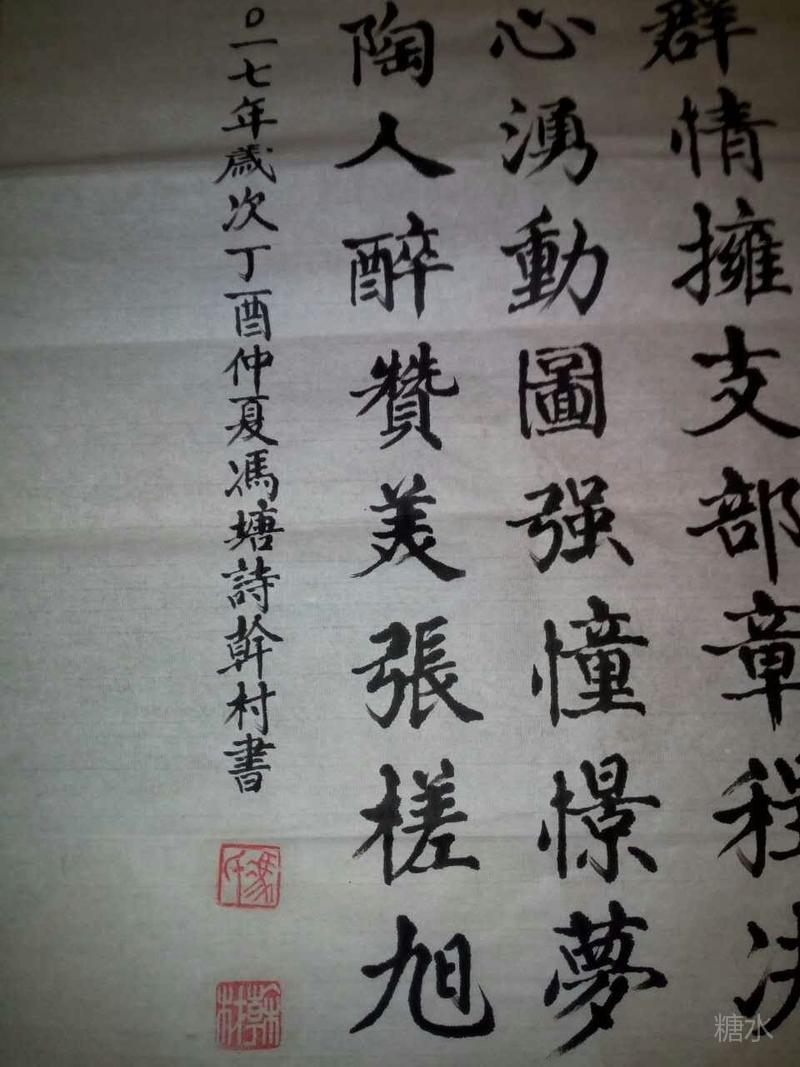 群情擁支部章程决
心湧動圖强憧憬夢
陶人醉赞美張槎旭
〇一七年歲次丁酉仲夏馮塘詩幹村書
馮氏
幹村
糖水